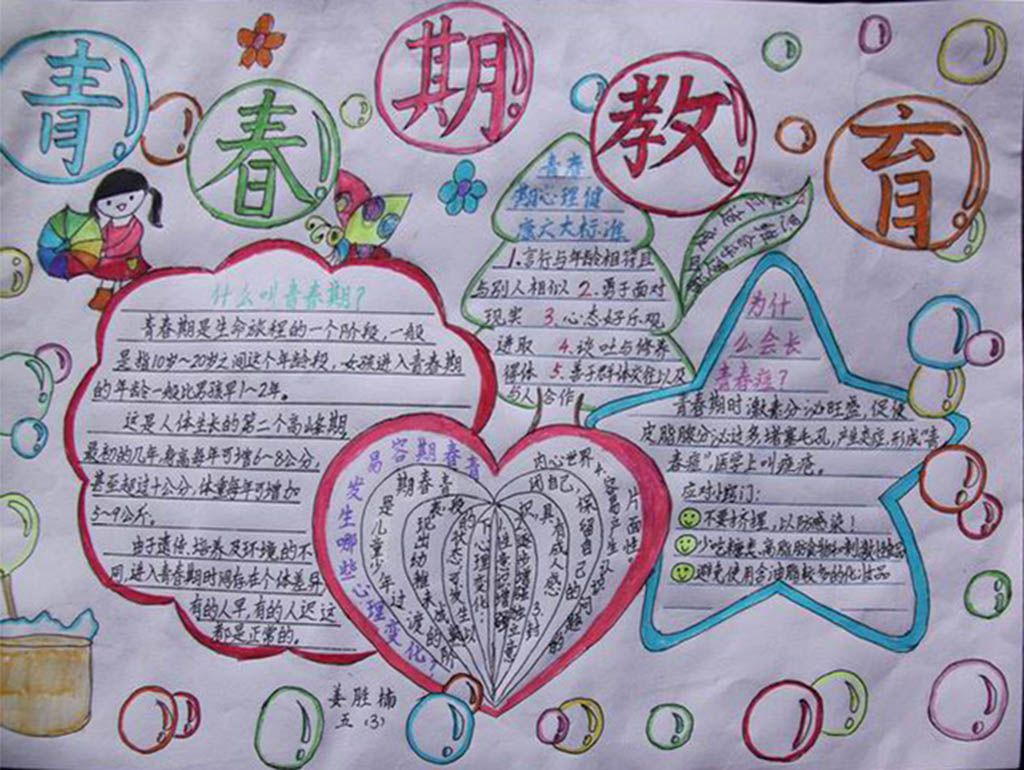 青春期教育
什么叫青春期?
青春期是生命旅程的一个阶段,一般
是指10岁~20岁之间这个年龄段,女孩进入青春期
的年龄一般比男孩早1~2年。
这是人体生长的第二个高峰期
最初的几年,身高每年可增6~8公分,
甚至超过十公分,体重每年可增加
5~9公斤。
由于遗传、培养及环境的不
同,进入青春期时间存在个体差异,
有的人早,有的人迟这
都是正常的。
青春
期心理健
康六大标准
1.言行与年龄相符且
与别人相识 2.勇于面对
现实 3.心态好乐观
进取 4.谈吐与修养
得体 5.善于群体交往以及
与人合作
青春期容易
发生哪些心理变化?
青春期
是儿童少年过
渡的阶
段
表现出幼稚
心理变化
内心世界
闭自己,
具有成人感
保留自己的
片面性
为什
么会长
青春痘?
青春期时激素分泌旺盛,促使
皮脂腺分泌过多堵塞毛孔,产生炎症,形成“青
春痘”,医学上叫痤疮。
应对小窍门:
不要挤捏,以防感染!
少吃糖类、高脂肪食物和刺激性食品
避免使用含油脂较多的化妆品
姜胜楠
五(3)